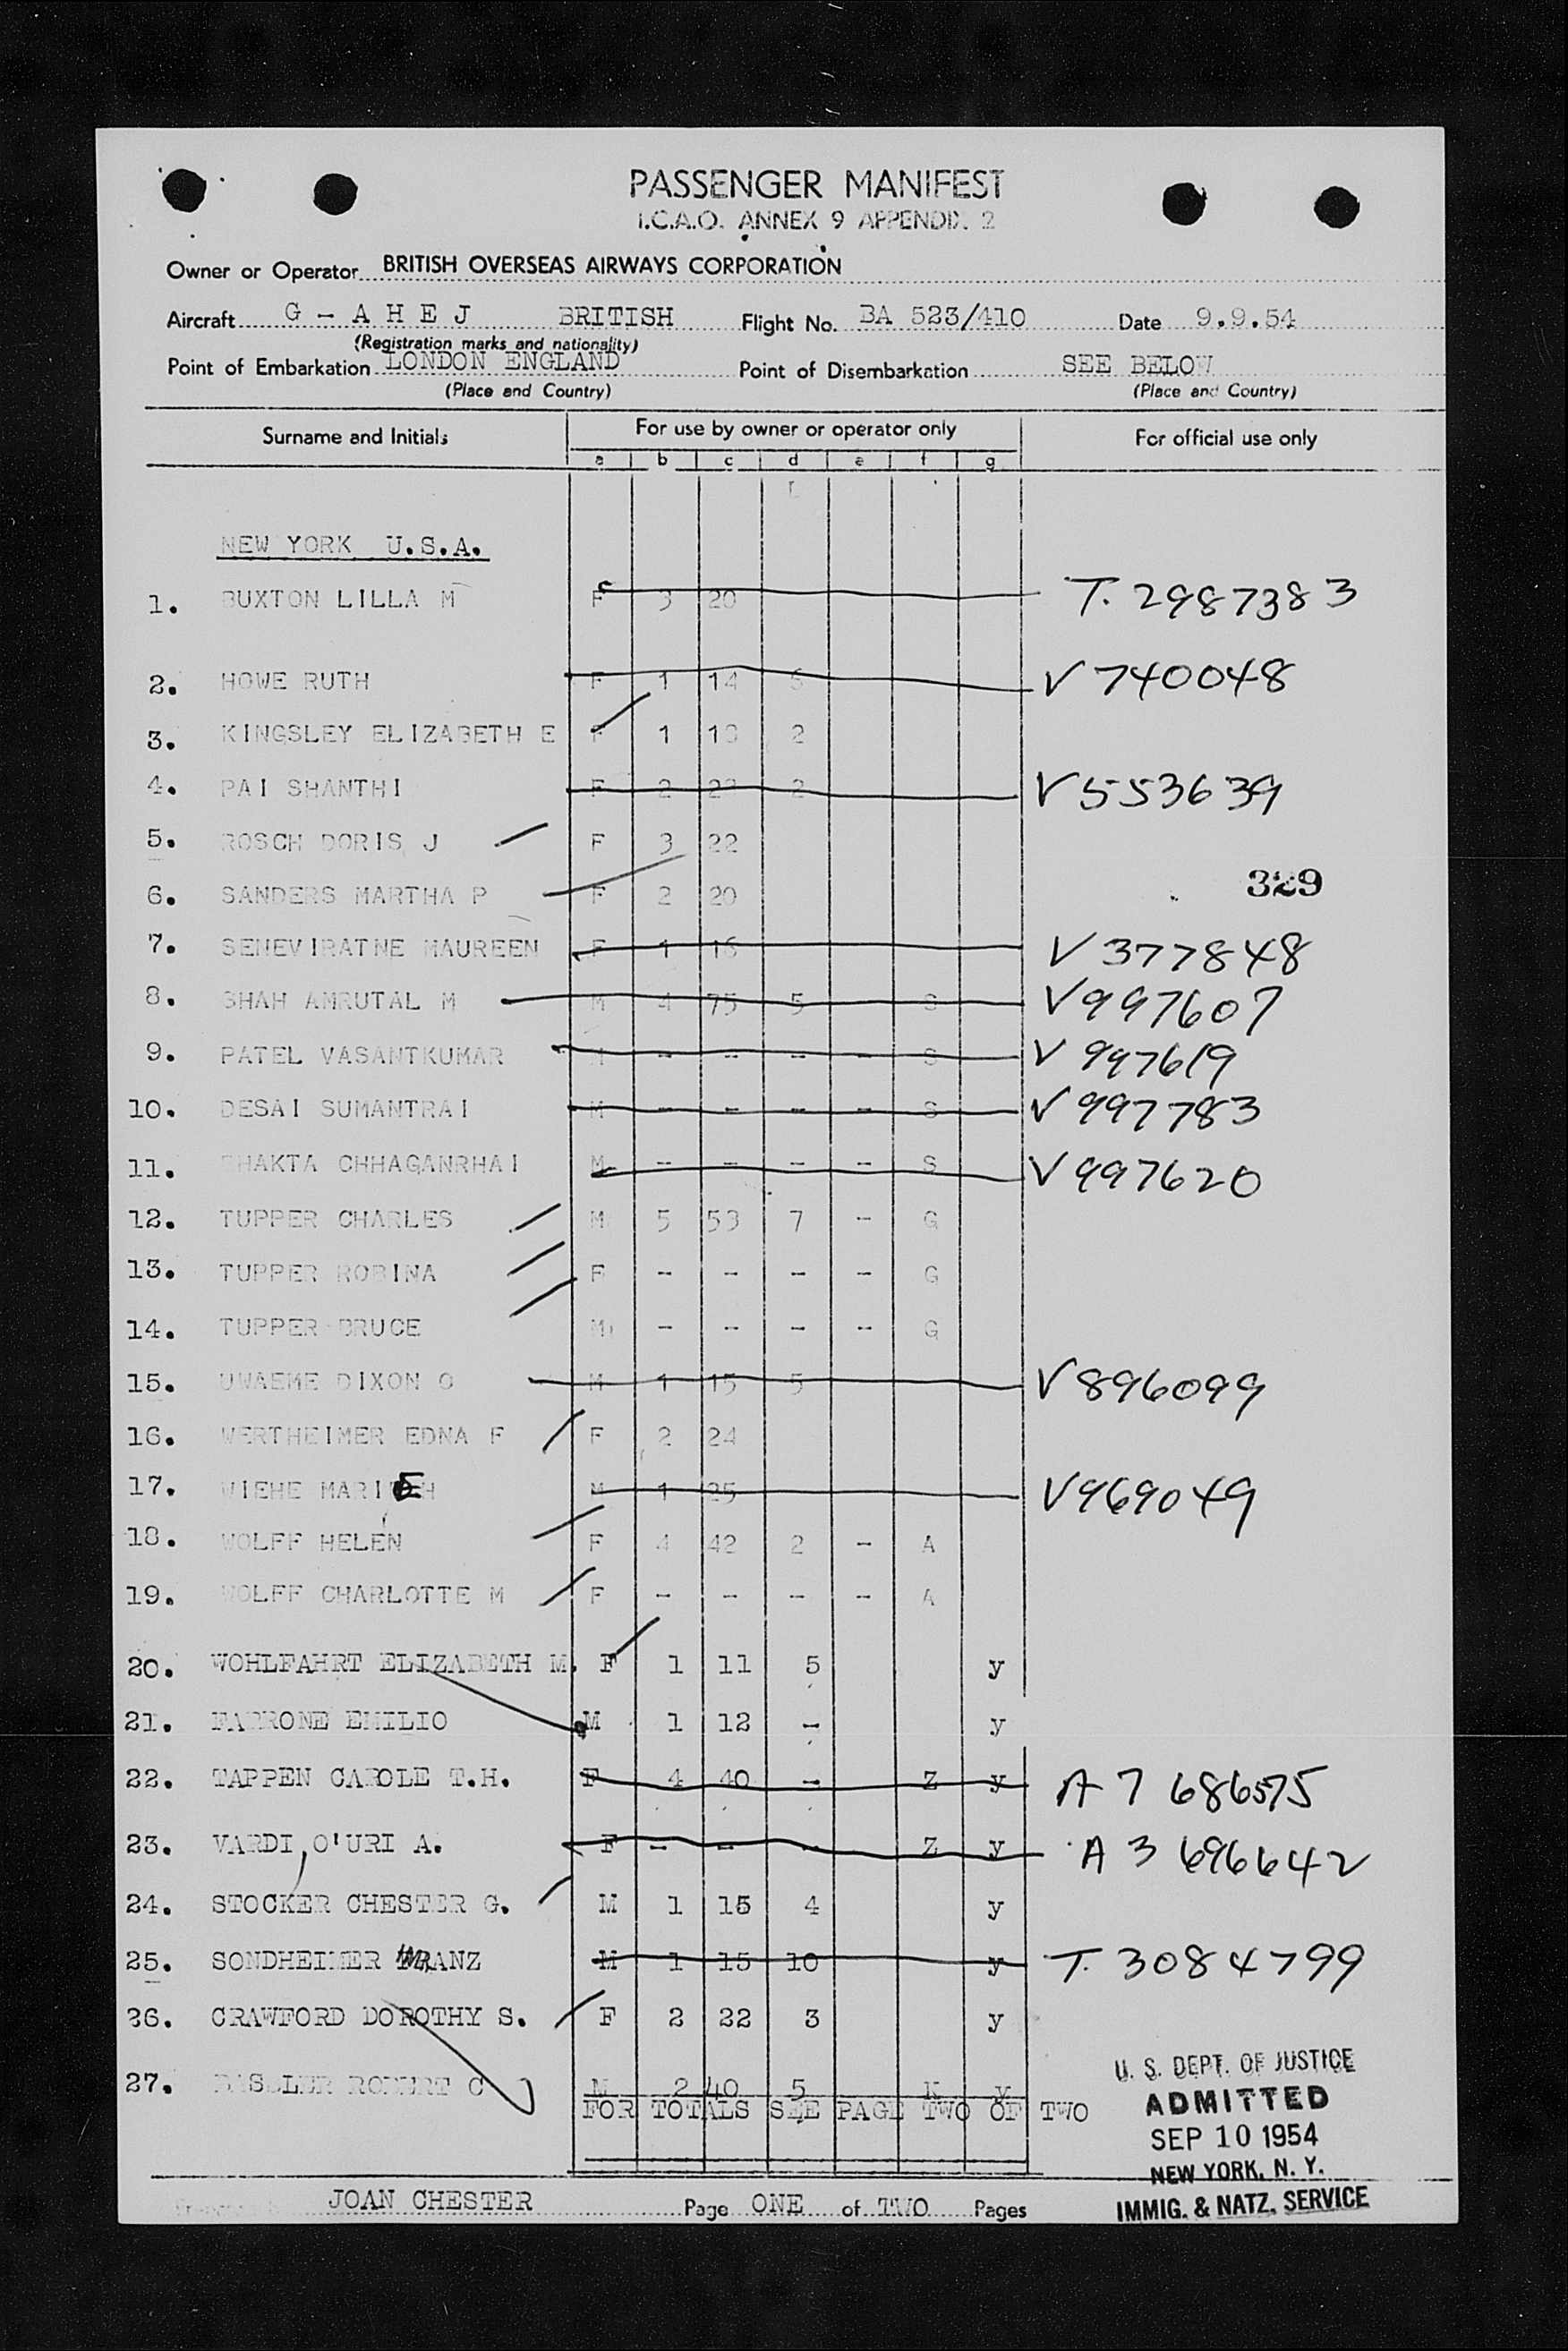 PASSENGER MANIFEST
I.C.A.O. ANNEX 9 APPENDIX 2
Owner or Operator BRITISH OVERSEAS AIRWAYS CORPORATION
Aircraft G - A H E J BRITISH Flight No. BA 523/410 Date 9.9.54
(Registration marks and nationality)
Point of Embarkation LONDON ENGLAND Point of Disembarkation SEE BELOW
(Place and Country) (Place and Country)
Surname and Initials For use by owner or operator only For official use only
a b c d e f g
NEW YORK U.S.A.
1. BUXTON LILLA M F 3 20 T. 2987383
2. HOWE RUTH F 1 14 V 740048
3. KINGSLEY ELIZABETH E F 1 2
4. PAI SHANTHI F 2 2 V 553639
5. ROSCH DORIS J F 3 22
6. SANDERS MARTHA P F 2 20
329
7. SENEVIRATNE MAUREEN F 1 V 377848
8. SHAH AMRUTAL M M 4 75 5 S V 997607
9. PATEL VASANTKUMAR M - - - - S V 997619
10. DESAI SUMANTRAI M - - - - S V 997783
11. BHAKTA CHHAGANRHAI M - - - - S V 997620
12. TUPPER CHARLES M 5 53 7 - G
13. TUPPER ROBINA F - - - - G
14. TUPPER BRUCE M - - - - G
15. UWAEME DIXON O M 1 15 5 V 896099
16. WERTHEIMER EDNA F F 2 24
17. WIEHE M 1 V 969049
18. WOLFF HELEN F 4 42 2 - A
19. WOLFF CHARLOTTE M F - - - - A
20. WOHLFAHRT ELIZABETH M. F 1 11 5 y
21. FARRONE EMILIO M 1 12 - y
22. TAPPEN CAROLE T.H. F 4 40 - Z y A 7 686575
23. VARDI, O'URI A. F - - - Z y A 3 696642
24. STOCKER CHESTER G. M 1 15 4 y
25. SONDHEIMER M 1 15 10 y T. 3084799
26. CRAWFORD DOROTHY S. F 2 22 3 y
27. ROBERT C M 2 40 5 K y
FOR TOTALS SEE PAGE TWO OF TWO
U. S. DEPT. OF JUSTICE
ADMITTED
SEP 10 1954
NEW YORK, N. Y.
IMMIG. & NATZ. SERVICE
JOAN CHESTER Page ONE of TWO Pages